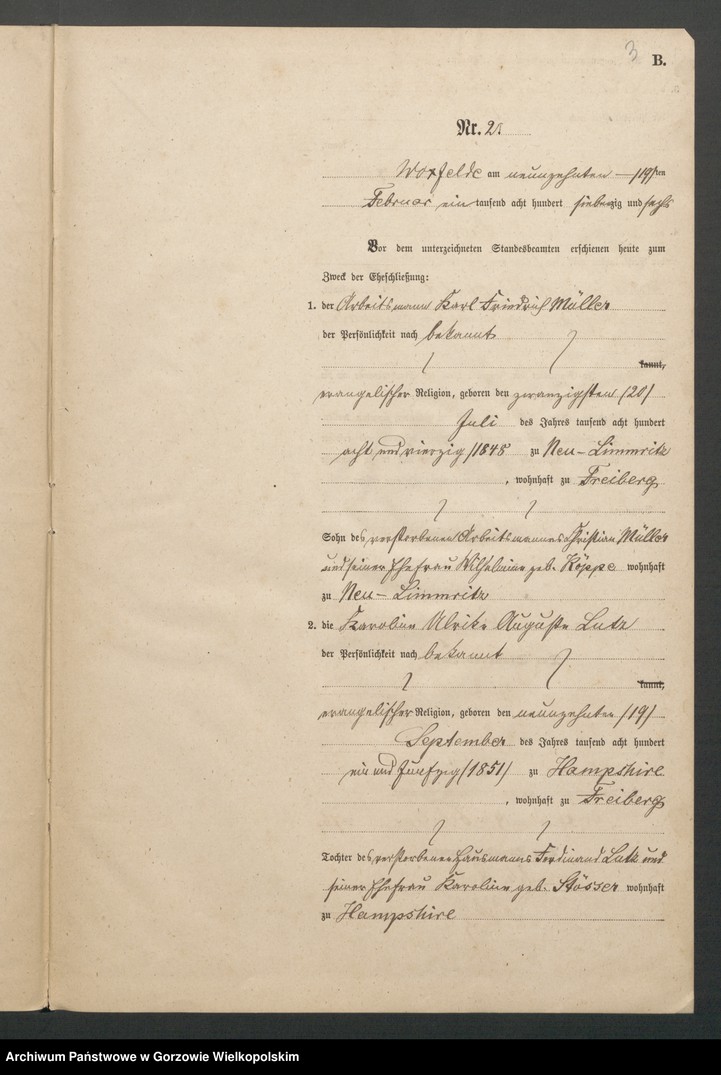 3
B.
Nr. 2.
Woxfelde am neunzehnten — /19/ten
Februar ein tausend acht hundert siebenzig und sechs
Vor dem unterzeichneten Standesbeamten erschienen heute zum
Zweck der Eheschließung:
1. der Arbeitsmann Karl Friedrich Müller
der Persönlichkeit nach bekannt
kannt,
evangelischer Religion, geboren den zwanzigsten /20/
Juli des Jahres tausend acht hundert
acht und vierzig /1848 zu Neu-Limmritz
, wohnhaft zu Freiberg
Sohn des verstorbenen Arbeitsmannes Christian Müller
und seiner Ehefrau Wilhelmine geb. Köppe wohnhaft
zu Neu-Limmritz
2. die Karoline Ulrike Auguste Lutz
der Persönlichkeit nach bekannt
kannt,
evangelischer Religion, geboren den neunzehnten /19/
September des Jahres tausend acht hundert
ein und fünfzig /1851/ zu Hampshire
, wohnhaft zu Freiberg
Tochter des verstorbenen Hausmanns Ferdinand Lutz und
seiner Ehefrau Karoline geb. Stösser wohnhaft
zu Hampshire
Archiwum Państwowe w Gorzowie Wielkopolskim